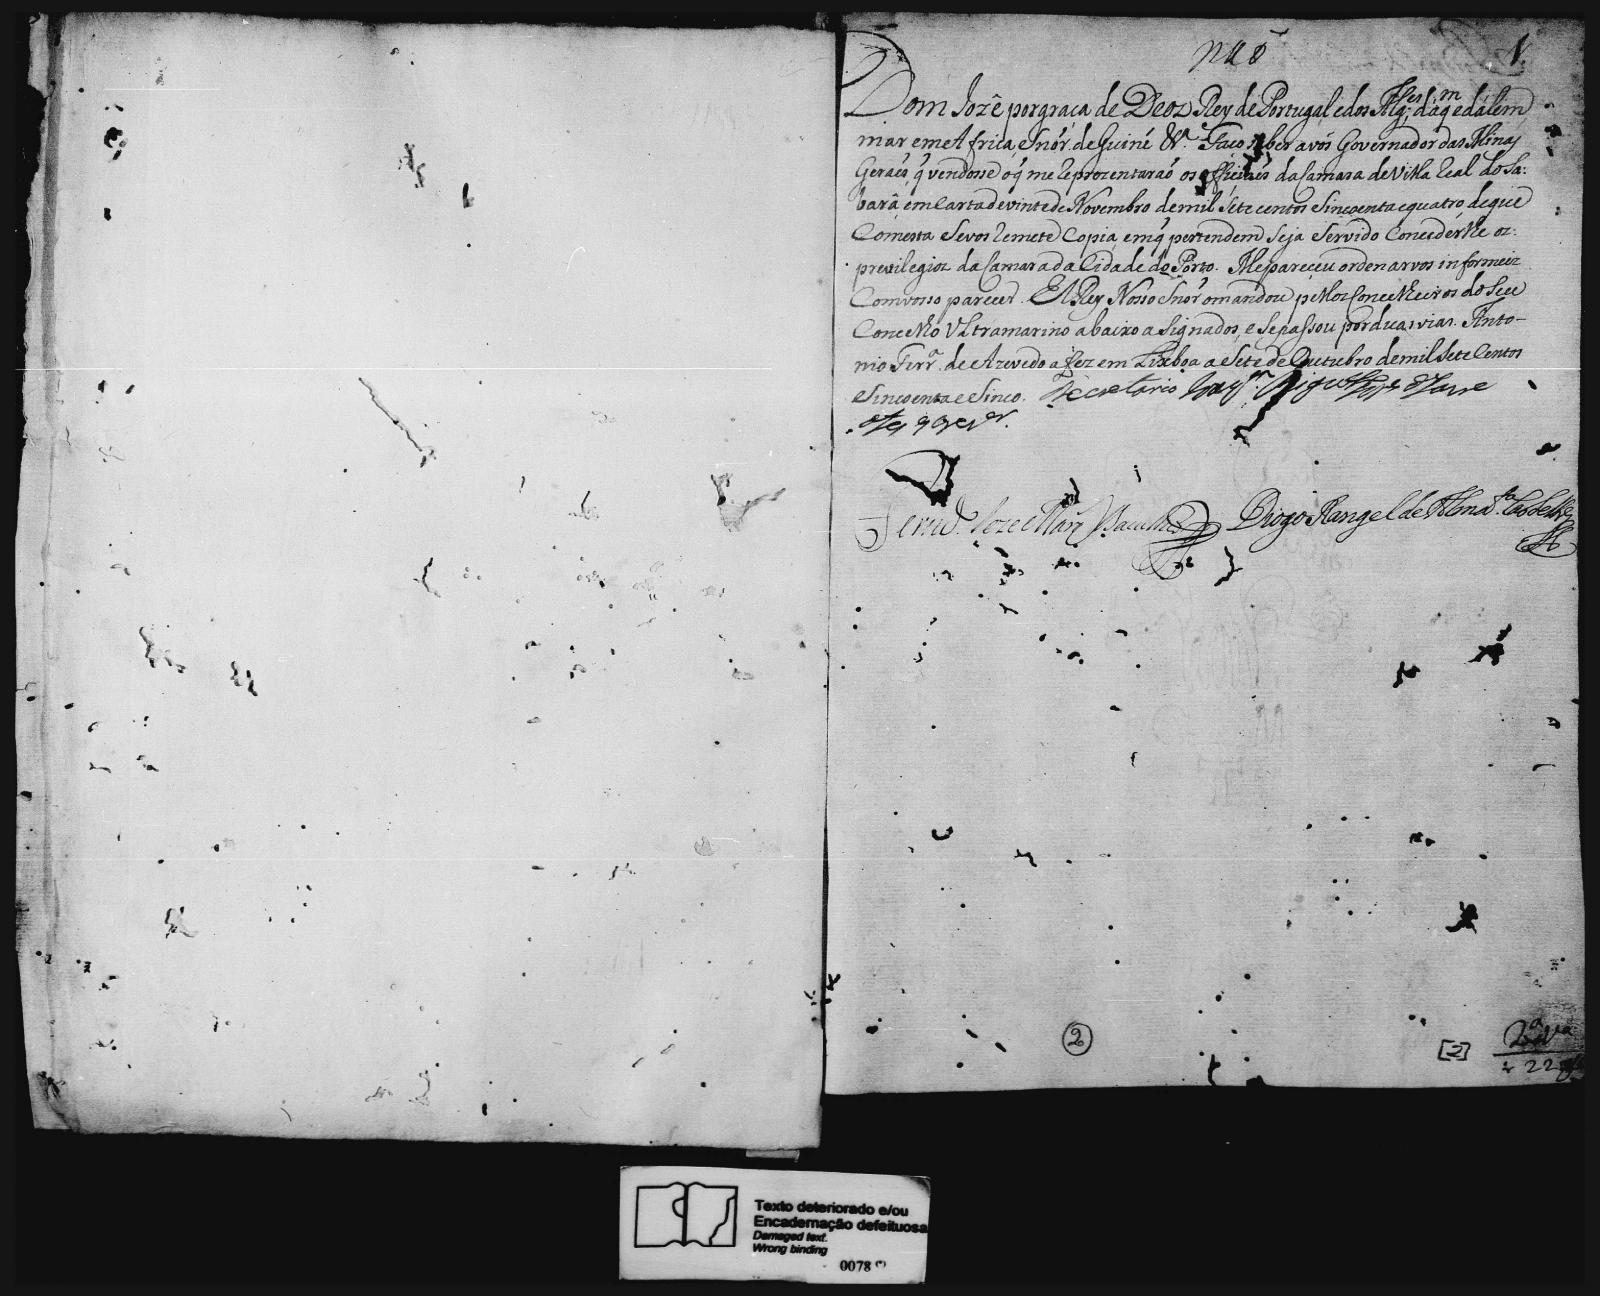 1.
Dom Jozê por graça de Deoz Rey de Portugal e dos Alg.es daq.m e dalém
mar em Africa, e Snõr. de Guiné &.a Faco saber a vós Governador das Minas
Geraes q̃ vendosse o q̃ me Reprezentaraõ os officiaes da Camara de Villa Real do Sa:
bará em Carta de vinte de Novembro de mil Sete centos e Sincoenta e quatro de que
Com esta Se vos Remete Copia, em q̃ pertendem Seja Servido Concederlhe oz:
previlegioz da Camara da Cidade do Porto. Me pareceu ordenarvos informeiz
Com vosso parecer. El Rey Nosso Snõr o mandou pelloz Concelheiros do Seu
Concelho Ultramarino abaixo aSignados, e Se passou por duas vias. Anto-
nio Ferr.a de Azevedo a fez em Lixboa a Sete de Outubro de mil Sete Centos
e Sincoenta e Sinco. Secretario
a fez escrever.
Joze
Diogo Rangel de Almd.a Castelbr.
2
[2]
2.a via
Texto deteriorado e/ou
Encadernação defeituosa
Damaged text.
Wrong binding
0078